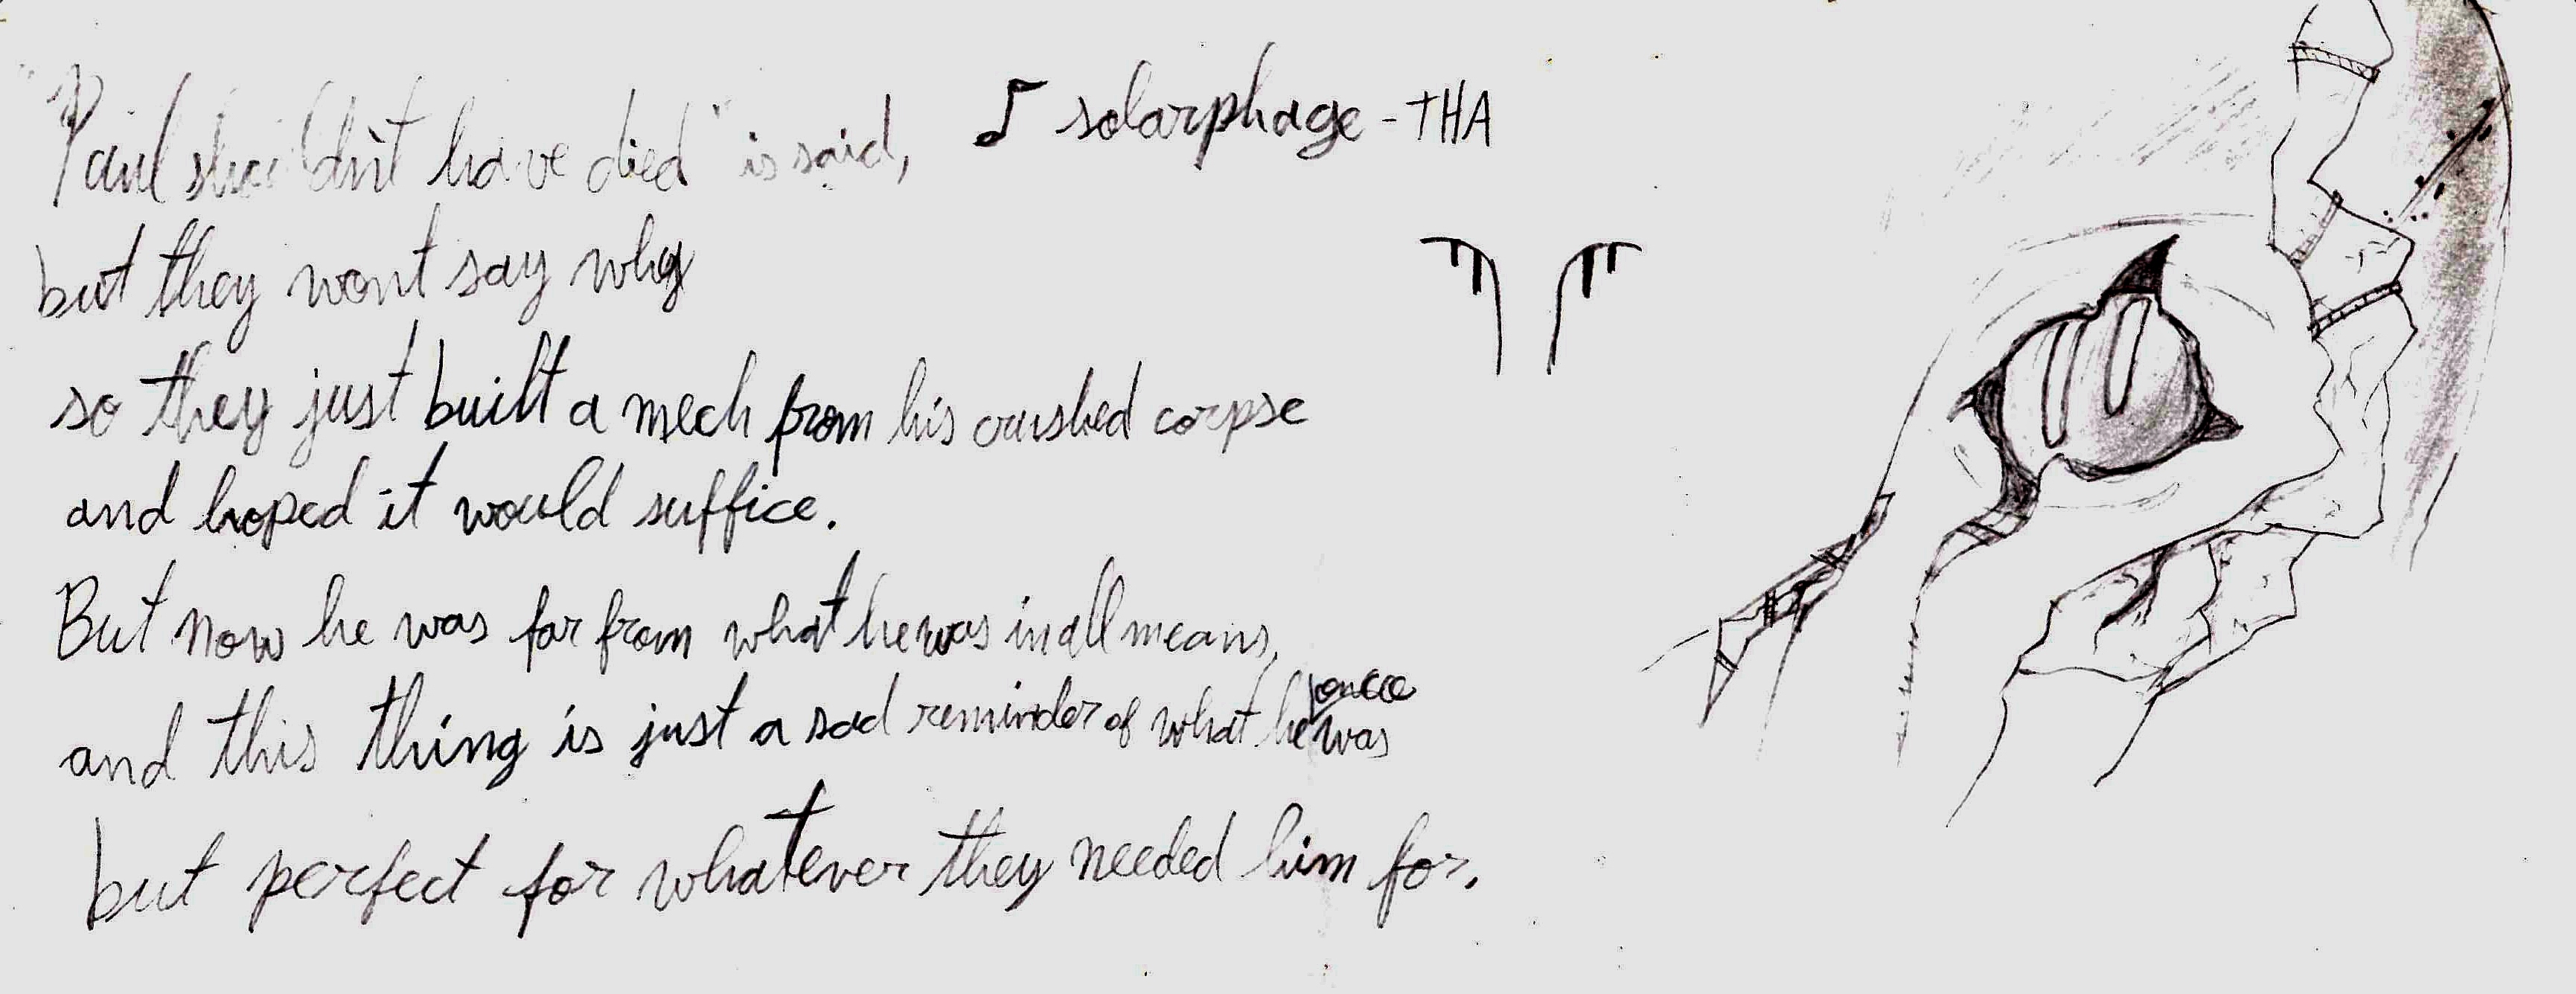 "Paul shouldn't have died" is said,
♪ solarphage - THA
but they wont say why
so they just built a mech from his crushed corpse
and hoped it would suffice.
But now he was far from what he was in all means,
and this thing is just a sad reminder of what he once was
but perfect for whatever they needed him for.